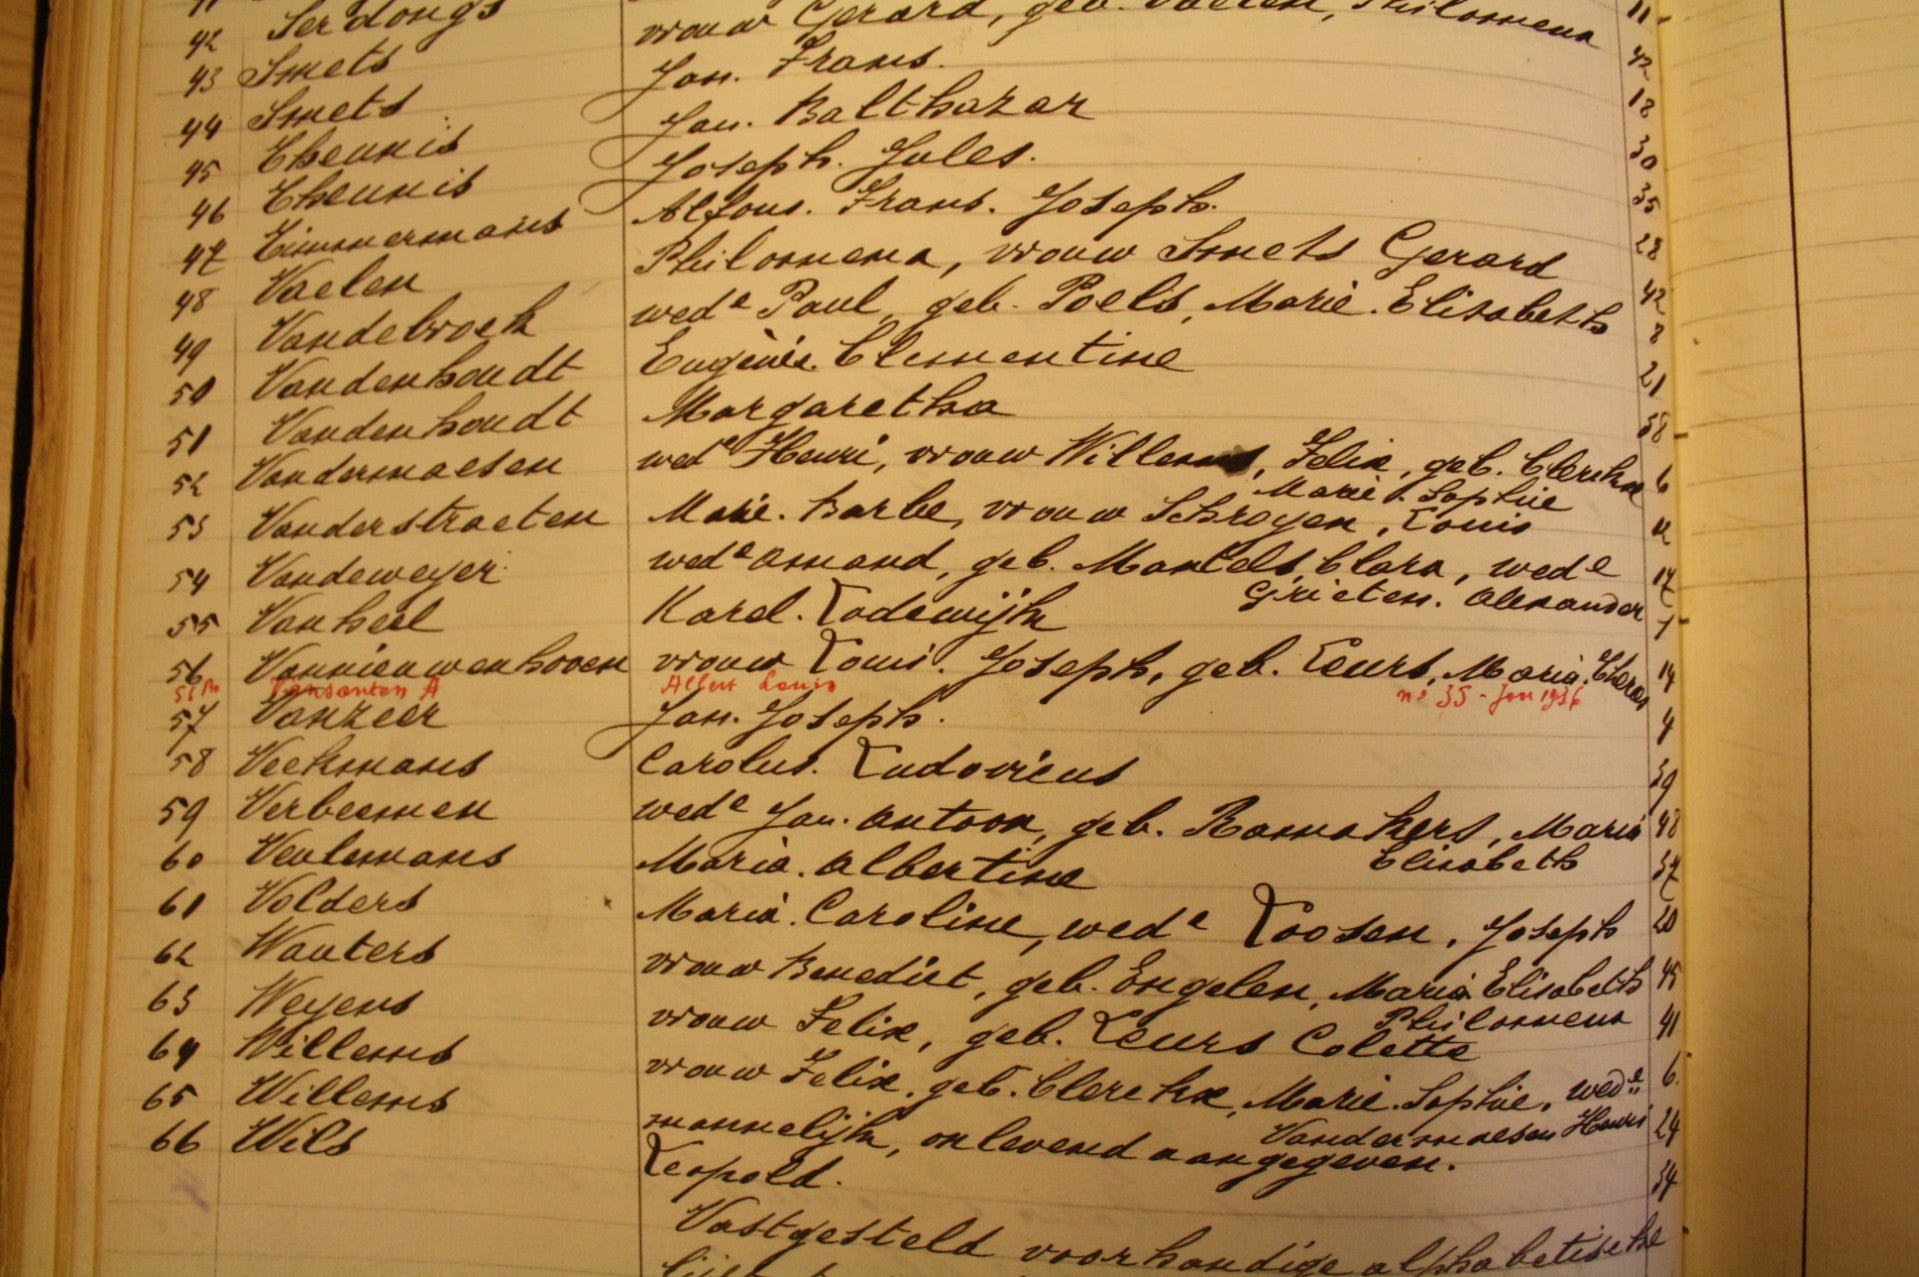 42 Serdongs vrouw Gerard, geb. Vaelen, Philomena 11
43 Smets Jan. Frans. 42
44 Smets Jan. Balthazar 18
45 Theunis Joseph. Jules. 30
46 Theunis Alfons. Frans. Joseph. 35
47 Timmermans Philomena, vrouw Smets Gerard 28
48 Vaelen wede Paul, geb. Poels, Marie. Elisabeth 42
49 Vandebroek Eugènie. Clementine 8
50 Vandenhoudt Margaretha 21
51 Vandenhoudt 58
52 Vandermaesen wede Henri, vrouw Willems, Felix, geb. Clerckx 6
Marie. Sophie
53 Vanderstraeten Marie. Barbe, vrouw Schroyen, Louis
54 Vandeweyer wede Amand, geb. Martels Clara, wede 17
Grieten. Alexander
55 Vanheel Karel. Lodewijk 1
56 Vannieuwenhoven vrouw Louis. Joseph, geb. Leurs, Maria. Theres 14
Vansanten A Albert Louis n° 35 - Jan 1936
57 Vanzeer Jan. Joseph. 4
58 Veekmans Carolus. Ludovicus 39
59 Verbeemen wede Jan. Antoon, geb. Ramakers, Maria 48
Elisabeth
60 Veulemans Maria. Albertine 37
61 Volders Maria. Caroline, wede Loosen, Joseph 20
62 Wauters vrouw Benedict, geb. Engelen, Maria Elisabeth 45
Philomena
63 Weyens vrouw Felix, geb. Leurs Colette 41
64 Willems vrouw Felix, geb. Clerckx, Marie. Sophie, wede 6
Vandermaesen Henri
65 Willems mannelijk, onlevend aangegeven. 24
66 Wils Leopold. 34
Vastgesteld voorhandige alphabetische